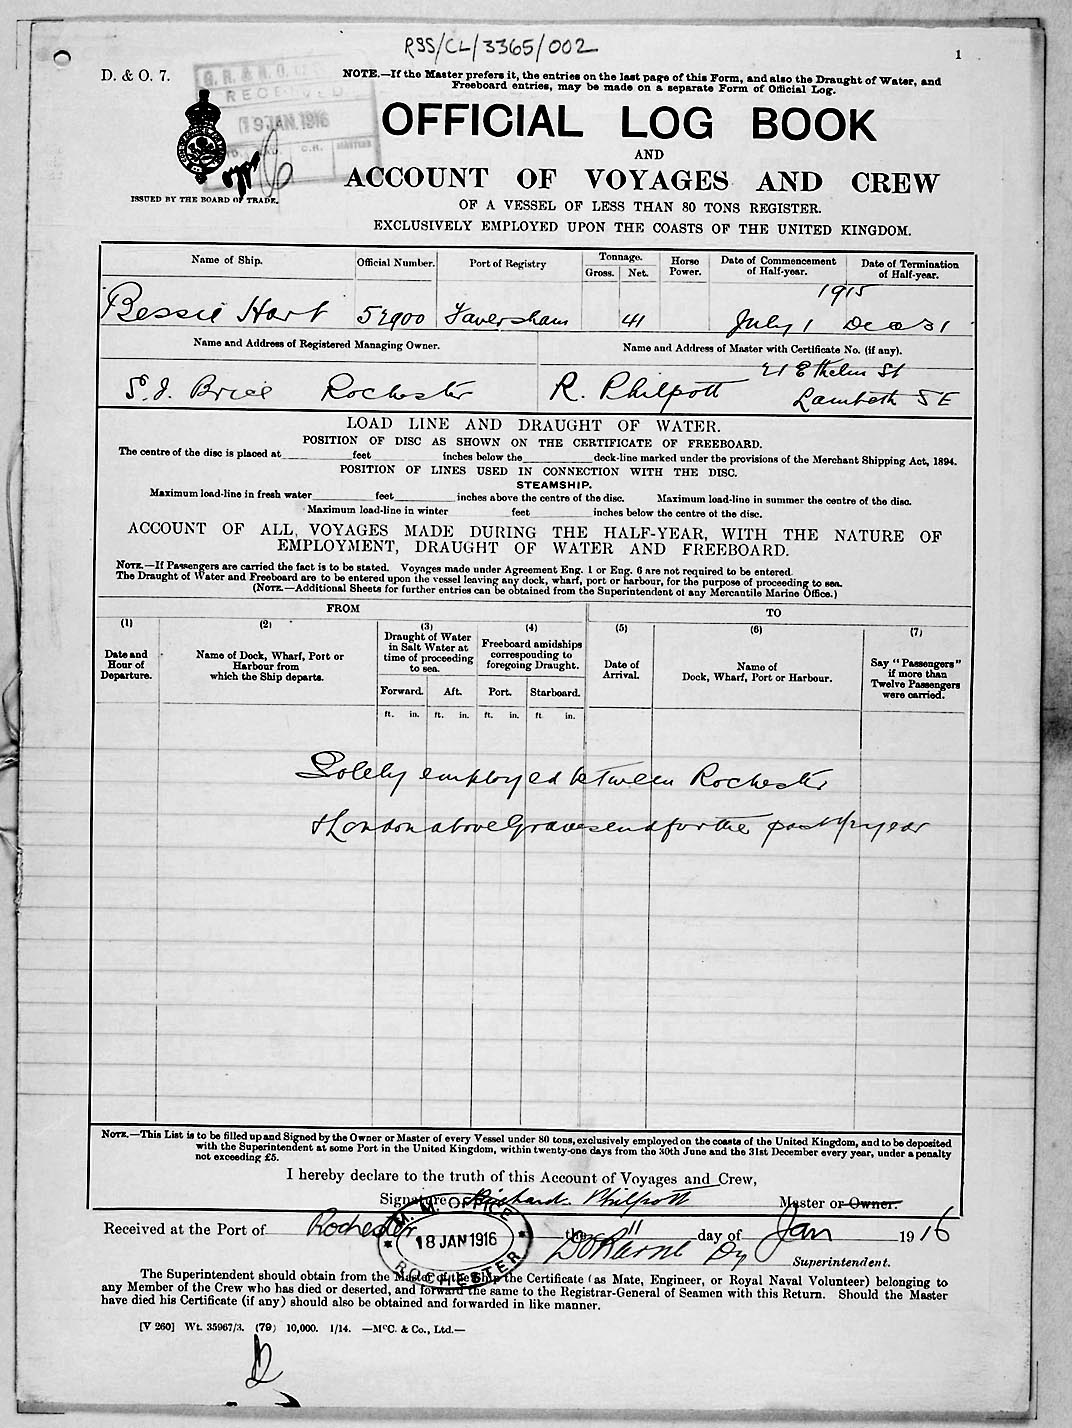 RSS/CL/3365/002
1
D. & O. 7.
NOTE.—If the Master prefers it, the entries on the last page of this Form, and also the Draught of Water, and
Freeboard entries, may be made on a separate Form of Official Log.
RECEIVED
19 JAN. 1916
OFFICIAL LOG BOOK
AND
ACCOUNT OF VOYAGES AND CREW
ISSUED BY THE BOARD OF TRADE.
OF A VESSEL OF LESS THAN 80 TONS REGISTER.
EXCLUSIVELY EMPLOYED UPON THE COASTS OF THE UNITED KINGDOM.
Name of Ship. Official Number. Port of Registry Tonnage. Gross. Net. Horse Power. Date of Commencement of Half-year. Date of Termination of Half-year.
1915
Bessie Hart 52900 Faversham 41 July 1 Dec 31
Name and Address of Registered Managing Owner. Name and Address of Master with Certificate No. (if any).
S. J. Brice Rochester R. Philpott 21 Ethelm St
Lambeth S E
LOAD LINE AND DRAUGHT OF WATER.
POSITION OF DISC AS SHOWN ON THE CERTIFICATE OF FREEBOARD.
The centre of the disc is placed at feet inches below the deck-line marked under the provisions of the Merchant Shipping Act, 1894.
POSITION OF LINES USED IN CONNECTION WITH THE DISC.
STEAMSHIP.
Maximum load-line in fresh water feet inches above the centre of the disc. Maximum load-line in summer the centre of the disc.
Maximum load-line in winter feet inches below the centre of the disc.
ACCOUNT OF ALL, VOYAGES MADE DURING THE HALF-YEAR, WITH THE NATURE OF
EMPLOYMENT, DRAUGHT OF WATER AND FREEBOARD.
NOTE.—If Passengers are carried the fact is to be stated. Voyages made under Agreement Eng. 1 or Eng. 6 are not required to be entered.
The Draught of Water and Freeboard are to be entered upon the vessel leaving any dock, wharf, port or harbour, for the purpose of proceeding to sea.
(NOTE.—Additional Sheets for further entries can be obtained from the Superintendent of any Mercantile Marine Office.)
FROM TO
(1) (2) (3) (4) (5) (6) (7)
Date and Hour of Departure. Name of Dock, Wharf, Port or Harbour from which the Ship departs. Draught of Water in Salt Water at time of proceeding to sea. Freeboard amidships corresponding to foregoing Draught. Date of Arrival. Name of Dock, Wharf, Port or Harbour. Say "Passengers" if more than Twelve Passengers were carried.
Forward. Aft. Port. Starboard.
ft. in. ft. in. ft. in. ft in.
Solely employed between Rochester
& London above Gravesend for the past 1/2 year
NOTE.—This List is to be filled up and Signed by the Owner or Master of every Vessel under 80 tons, exclusively employed on the coasts of the United Kingdom, and to be deposited
with the Superintendent at some Port in the United Kingdom, within twenty-one days from the 30th June and the 31st December every year, under a penalty
not exceeding £5.
I hereby declare to the truth of this Account of Voyages and Crew,
Signature Richard Philpott Master or Owner.
Received at the Port of Rochester the 11 day of Jan 1916
M. M. OFFICE
18 JAN 1916
ROCHESTER
Superintendent.
The Superintendent should obtain from the Master of the Ship the Certificate (as Mate, Engineer, or Royal Naval Volunteer) belonging to
any Member of the Crew who has died or deserted, and forward the same to the Registrar-General of Seamen with this Return. Should the Master
have died his Certificate (if any) should also be obtained and forwarded in like manner.
[V 260] Wt. 35967/3. (79) 10,000. 1/14. —McC. & Co., Ltd.—